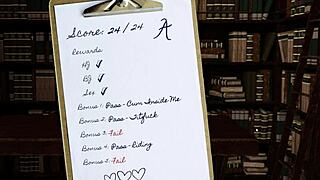 Score: 24/24 A
Rewards
HJ ✓
BJ ✓
Sex ✓
Bonus 1: Pass - Cum Inside Me
Bonus 2: Pass - Titfuck
Bonus 3: Fail
Bonus 4: Pass - Riding
Bonus 5: Fail